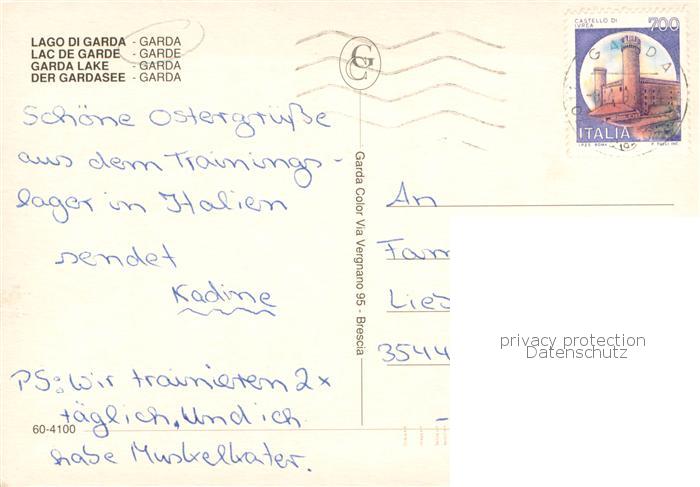 LAGO DI GARDA - GARDA
LAC DE GARDE - GARDE
GARDA LAKE - GARDA
DER GARDASEE - GARDA
GC
CASTELLO DI IVREA
700
GARDA
ITALIA
I.P.Z.S. ROMA
Schöne Ostergrüße
aus dem Trainings-
lager in Italien
sendet
Kadine
PS: Wir trainieren 2x
täglich. Und ich
habe Muskelkater.
60-4100
Garda Color Via Vergnano 95 - Brescia
An
Fam
Lie
3544
privacy protection
Datenschutz